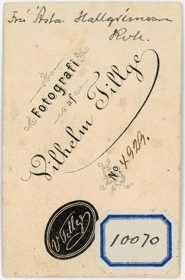 Frú Ásta Hallgrímsson
Rvk.
Fotografi
af
Vilhelm Tillge
No 4929.
V. Tillge
10070